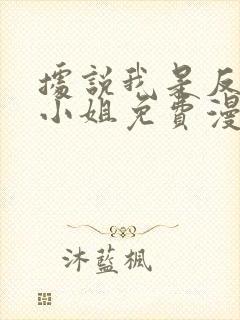 據說我是反
小姐免費漫
沐藍楓